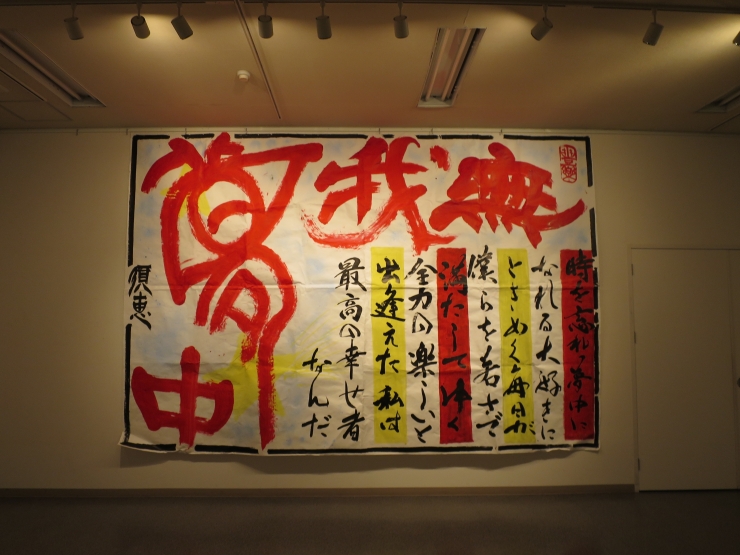 無我夢中
時を忘れて夢中に
なれる大好きに
ときめく毎日が
僕らを若さで
満たしてゆく
全力の楽しいと
出逢えた私は
最高の幸せ者
なんだ